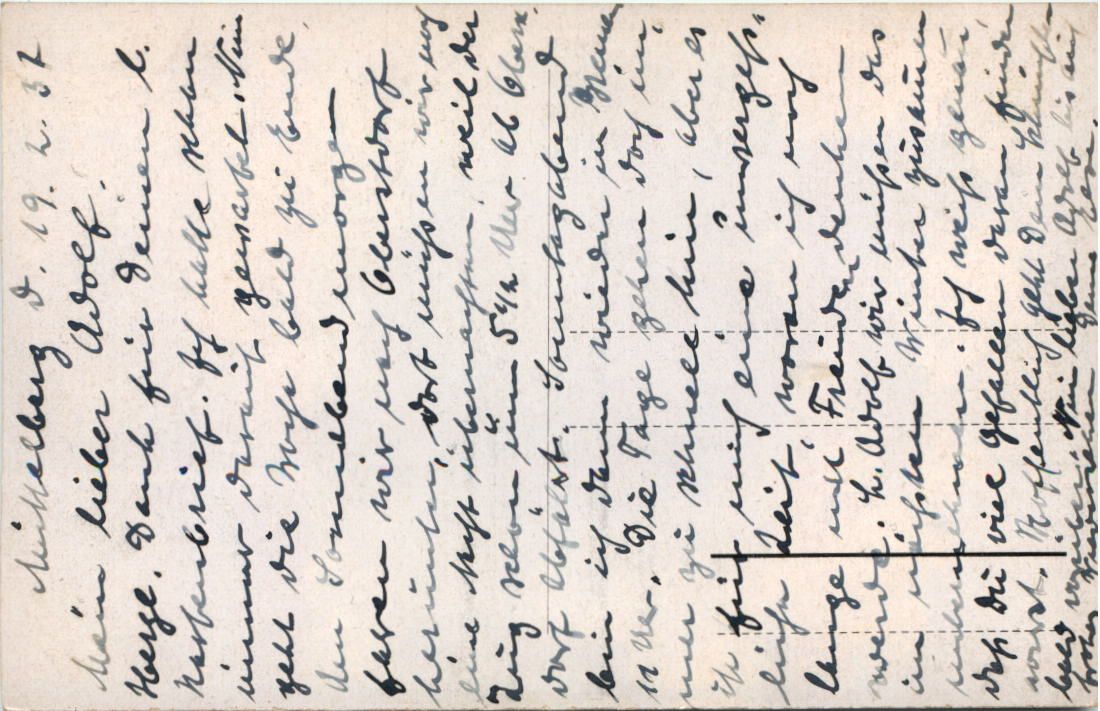 Mittelberg d. 19. 2. 37
Mein lieber Adolf.
Herzl. Dank für Deinen l.
Kartenbrief. Ich hatte schon
immer darauf gewartet. Nun
geht die Woche bald zu Ende.
Am Sonnabend morgen
fahren wir nach Oberstdorf
herunter, dort müssen wir noch
eine Nacht übernachten, weil der
Zug schon um 5 Uhr ab Oberst-
dorf abfährt. Sonntagabend
bin ich dann wieder in Bremen
Uhr. Die Tage gehen doch im-
mer zu schnell hin, aber es
ist für mich eine unvergeß-
liche Zeit, woran ich noch
lange mit Freuden denken
werde. L. Adolf wir müssen das
im nächsten Winter zusammen
unternehmen. Ich weiß genau,
daß Du viel Gefallen daran finden
wirst. Hoffentlich geht Dein
bald vorüber. Nun lieber Adolf bis auf
frohes Wiedersehen Deine